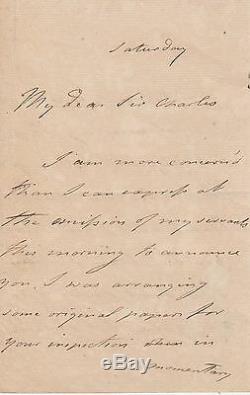 Saturday
My dear Sir Charles
I am more concern'd
than I can express at
the omission of my servants
this morning to announce
you. I was arranging
some original papers for
your inspection when in
momentary